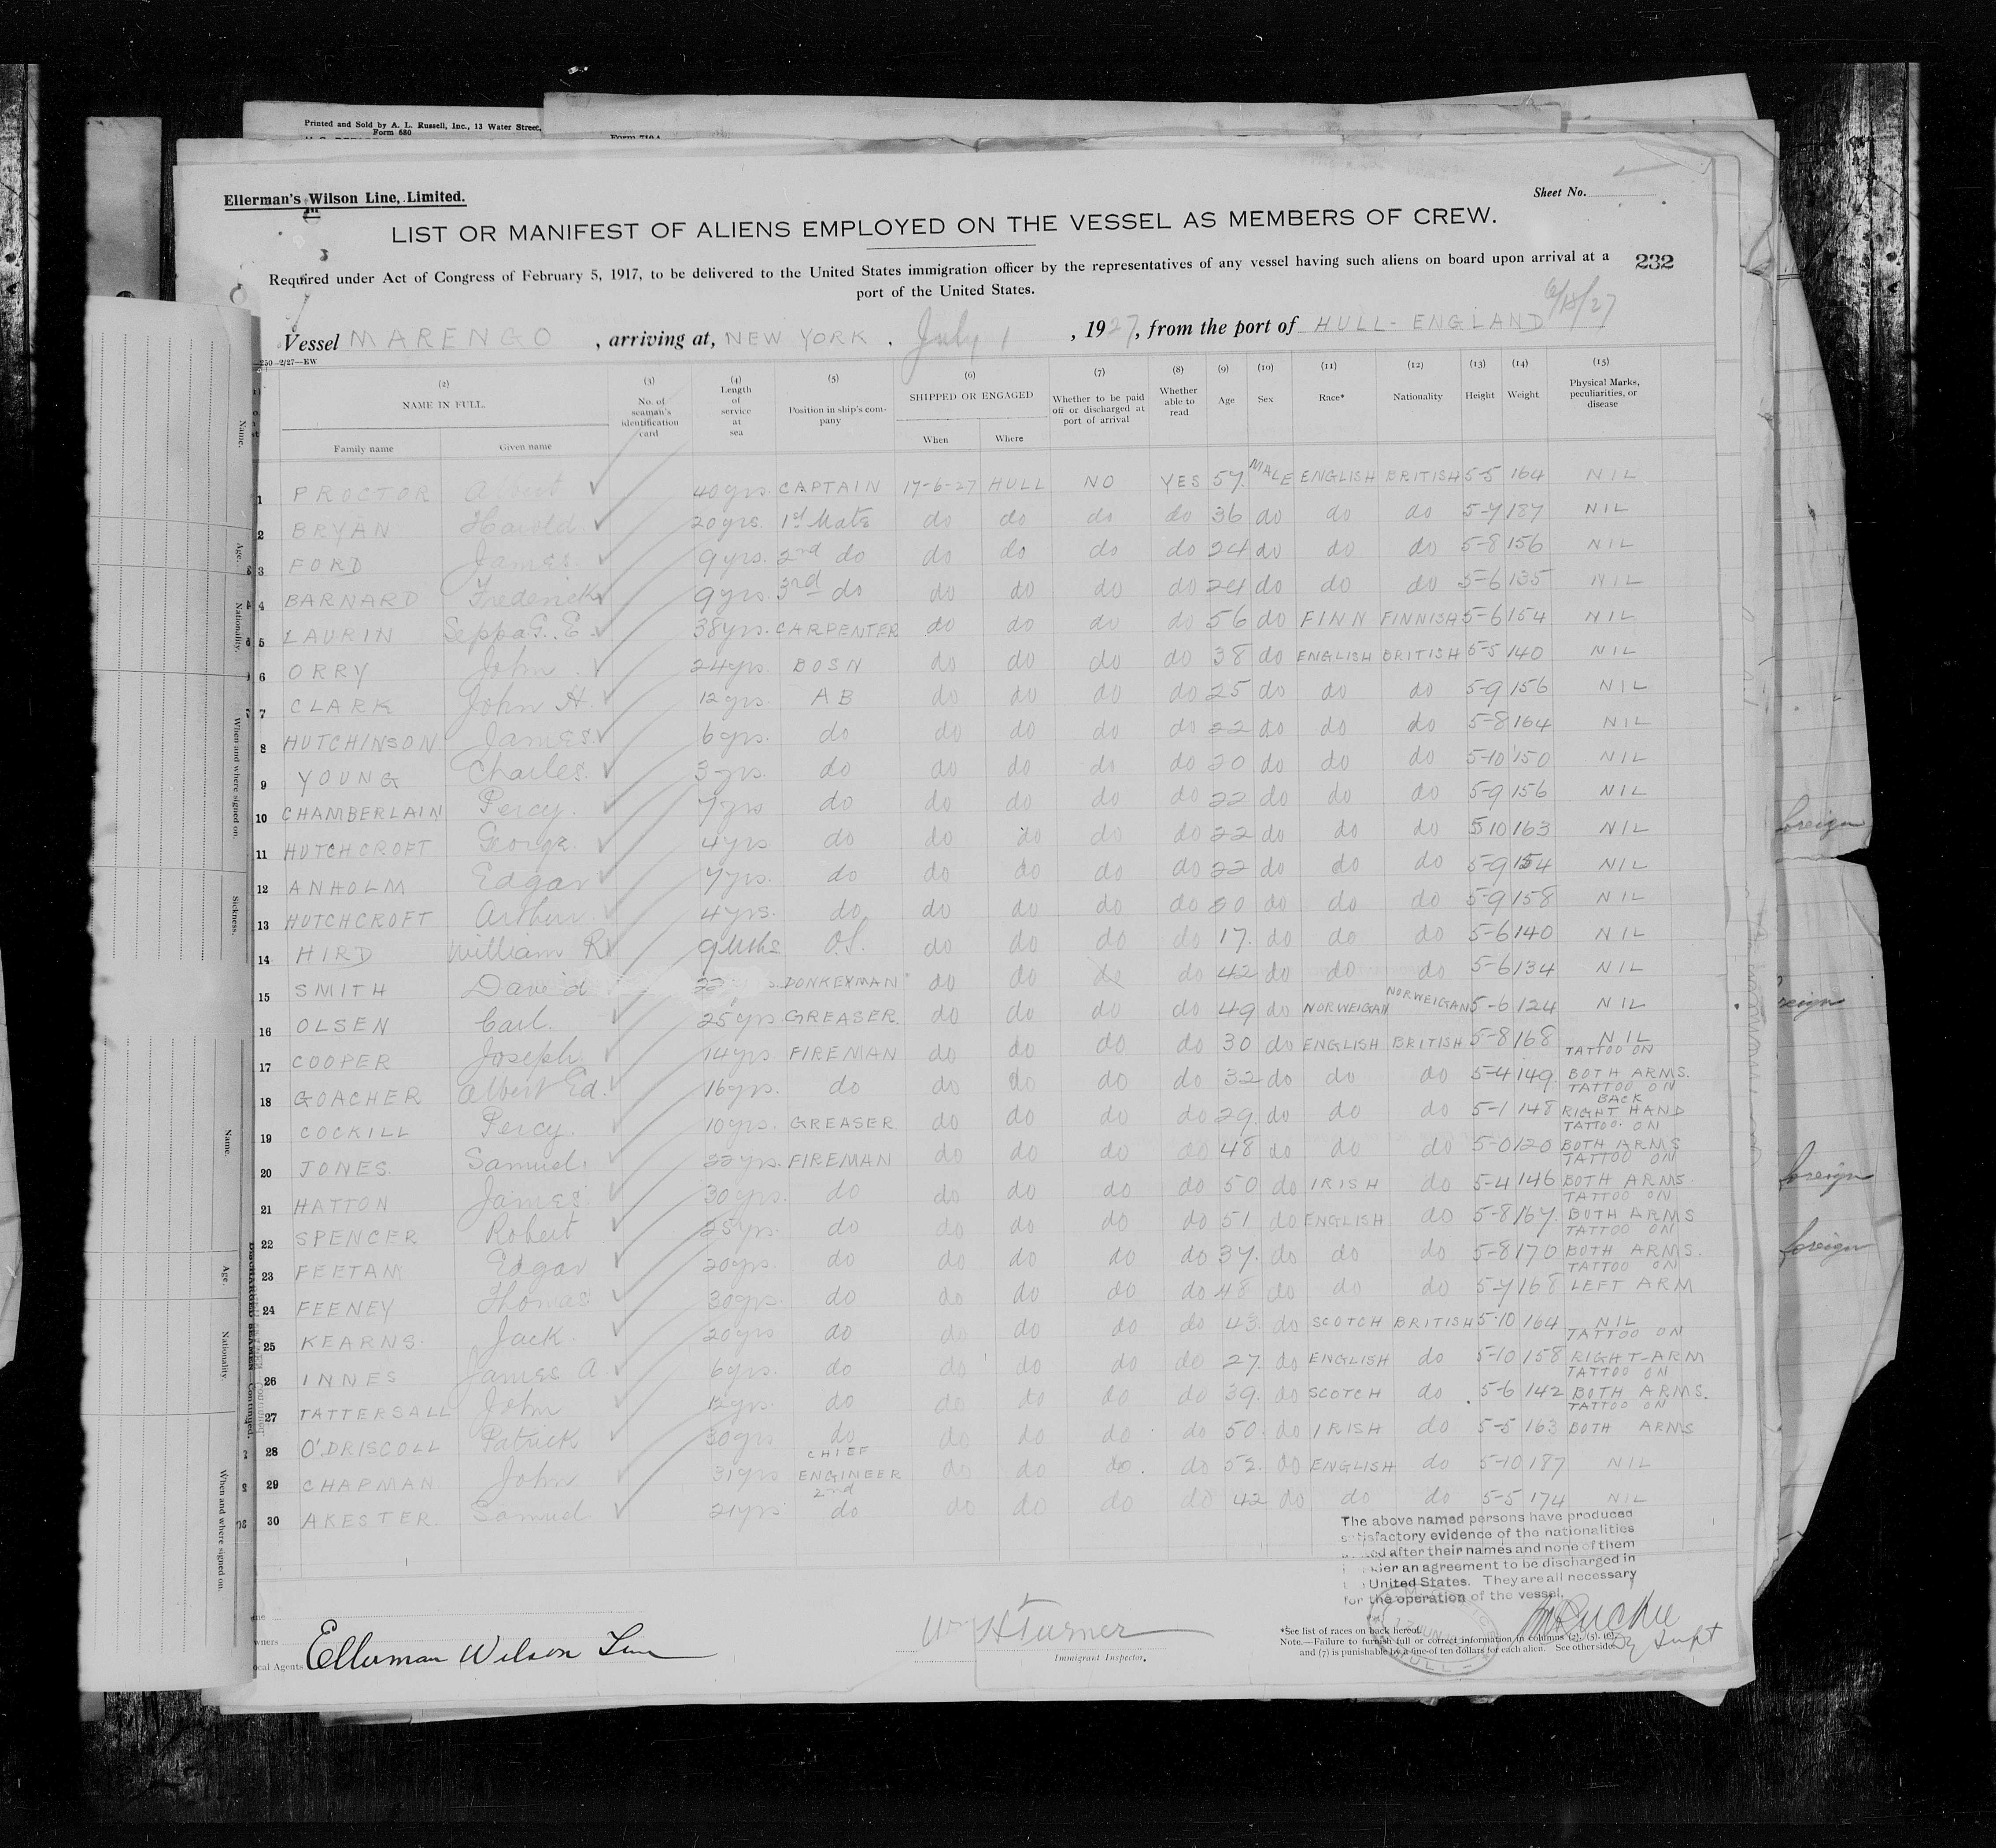 Printed and Sold by A. L. Russell, Inc., 13 Water Street,
Form 680
Form 710A
Ellerman's Wilson Line, Limited.
Sheet No.
LIST OR MANIFEST OF ALIENS EMPLOYED ON THE VESSEL AS MEMBERS OF CREW.
Required under Act of Congress of February 5, 1917, to be delivered to the United States immigration officer by the representatives of any vessel having such aliens on board upon arrival at a
port of the United States.
232
6/18/27
Vessel MARENGO, arriving at, NEW YORK. July 1, 1927, from the port of HULL - ENGLAND
250-2/27-EW
(2) (3) (4) (5) (6) (7) (8) (9) (10) (11) (12) (13) (14) (15)
NAME IN FULL. No. of seaman's identification card Length of service at sea Position in ship's company SHIPPED OR ENGAGED Whether to be paid off or discharged at port of arrival Whether able to read Age Sex Race* Nationality Height Weight Physical Marks, peculiarities, or disease
Family name Given name When Where
1 PROCTOR 40 yrs. CAPTAIN 17-6-27 HULL NO YES 57 MALE ENGLISH BRITISH 5-5 164 NIL
2 BRYAN Harold 20 yrs. 1st Mate do do do do 36 do do do 5-7 187 NIL
3 FORD James 9 yrs. 2nd do do do do do 24 do do do 5-8 156 NIL
4 BARNARD Frederick 9 yrs. 3rd do do do do do 24 do do do 5-6 135 NIL
5 LAURIN E. 38 yrs. CARPENTER do do do do 56 do FINN FINNISH 5-6 154 NIL
6 ORRY John 24 yrs. BOSN do do do do 38 do ENGLISH BRITISH 5-5 140 NIL
7 CLARK John H. 12 yrs. AB do do do do 25 do do do 5-9 156 NIL
8 HUTCHINSON James 6 yrs. do do do do do 22 do do do 5-8 164 NIL
9 YOUNG Charles. 3 yrs. do do do do do 20 do do do 5-10 150 NIL
10 CHAMBERLAIN Percy. 7 yrs do do do do do 22 do do do 5-9 156 NIL
11 HUTCHCROFT George 4 yrs do do do do do 22 do do do 5 10 163 NIL
12 ANHOLM Edgar 7 yrs. do do do do do 22 do do do 5-9 154 NIL
13 HUTCHCROFT Arthur 4 yrs. do do do do do 20 do do do 5-9 158 NIL
14 HIRD William R. 9 Mths O.S. do do do do 17. do do do 5-6 140 NIL
15 SMITH David 22 DONKEYMAN do do do do 42 do do do 5-6 134 NIL
16 OLSEN Carl. 25 yrs GREASER. do do do do 49 do NORWEIGAN NORWEIGAN 5-6 124 NIL
17 COOPER Joseph 14 yrs FIREMAN do do do do 30 do ENGLISH BRITISH 5-8 168 NIL
18 GOACHER Albert Ed. 16 yrs. do do do do do 32 do do do 5-4 149 TATTOO ON BOTH ARMS.
19 COCKILL Percy. 10 yrs. GREASER do do do do 29. do do do 5-1 148 TATTOO ON BACK RIGHT HAND
20 JONES. Samuel. 22 yrs. FIREMAN do do do do 48 do do do 5-0 120 TATTOO ON BOTH ARMS
21 HATTON James 30 yrs. do do do do do 50 do IRISH do 5-4 146 TATTOO ON BOTH ARMS.
22 SPENCER Robert 25 yrs. do do do do do 51 do ENGLISH do 5-8 167. TATTOO ON BOTH ARMS
23 FEETAM Edgar 20 yrs. do do do do do 37. do do do 5-8 170 TATTOO ON BOTH ARMS.
24 FEENEY Thomas 30 yrs. do do do do do 48 do do do 5-7 168 TATTOO ON LEFT ARM
25 KEARNS. Jack. 20 yrs do do do do do 43 do SCOTCH BRITISH 5-10 164 NIL
26 INNES James A. 6 yrs. do do do do do 27. do ENGLISH do 5-10 158 TATTOO ON RIGHT-ARM
27 TATTERSALL John yrs. do do do do do 39. do SCOTCH do 5-6 142 TATTOO ON BOTH ARMS.
28 O'DRISCOLL Patrick 30 yrs do do do do do 50. do IRISH do 5-5 163 TATTOO ON BOTH ARMS
29 CHAPMAN John 31 yrs CHIEF ENGINEER do do do. do 52. do ENGLISH do 5-10 187 NIL
30 AKESTER. Samuel 21 yrs 2nd do do do do do 42 do do do 5-5 174 NIL
The above named persons have produced
satisfactory evidence of the nationalities
after their names and none of them
an agreement to be discharged in
United States. They are all necessary
for the operation of the vessel.
Local Agents Ellerman Wilson Line
Wm H Turner
Immigrant Inspector.
*See list of races on back hereof.
Note.—Failure to furnish full or correct information in columns (2), (5), (6),
and (7) is punishable by a fine of ten dollars for each alien. See otherside.
Name.
Age.
Nationality.
When and where signed on.
Sickness.
Name.
Age.
Nationality.
When and where signed on.
DISCHARGED SEAMEN—Continued.
foreign
foreign
foreign
foreign